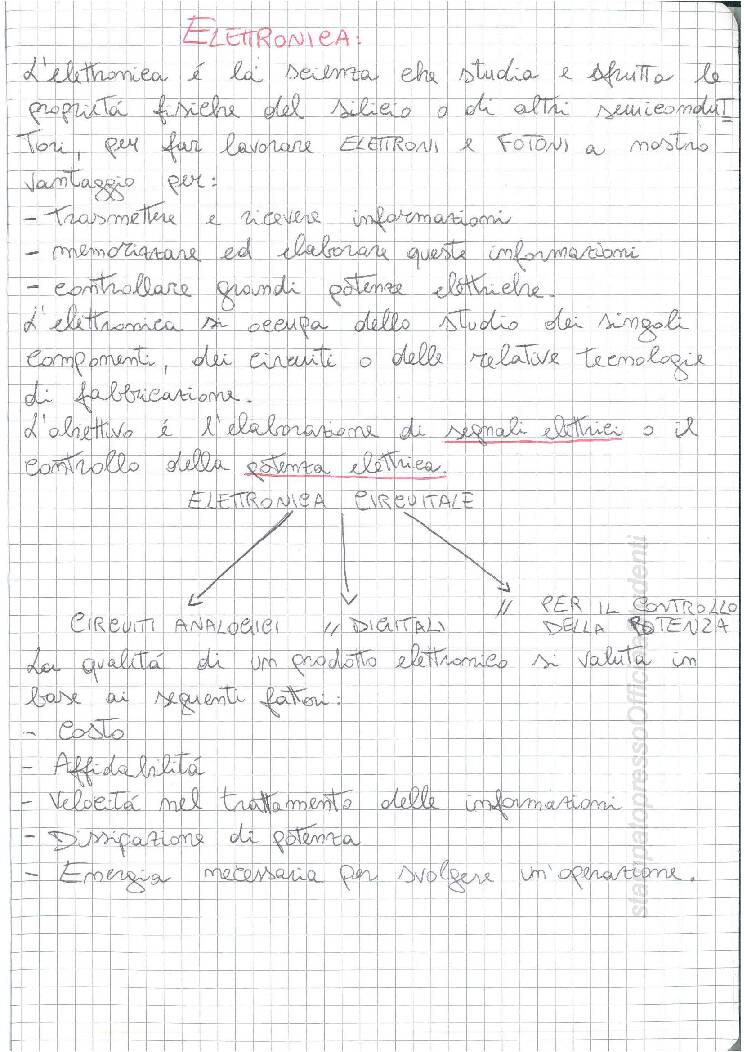 ELETTRONICA:
L'elettronica é la scienza che studia e sfrutta le
proprietá fisiche del silicio o di altri semicondut
Tori, per far lavorare ELETTRONI e FOTONI a nostro
vantaggio per:
- trasmettere e ricevere informazioni
- memorizzare ed elaborare queste informazioni
- controllare grandi potenze elettriche.
L'elettronica si occupa dello studio dei singoli
componenti, dei circuiti o delle relative tecnologie
di fabbricazione.
L'obiettivo é l'elaborazione di segnali elettrici o il
controllo della potenza elettrica.
ELETTRONICA CIRCUITALE
CIRCUITI ANALOGICI // DIGITALI // PER IL CONTROLLO
DELLA POTENZA
La qualitá di un prodotto elettronico si valuta in
base ai seguenti fattori:
- Costo
- Affidabilitá
- Velocitá nel trattamento delle informazioni
- Dissipazione di potenza
- Energia necessaria per svolgere un'operazione.